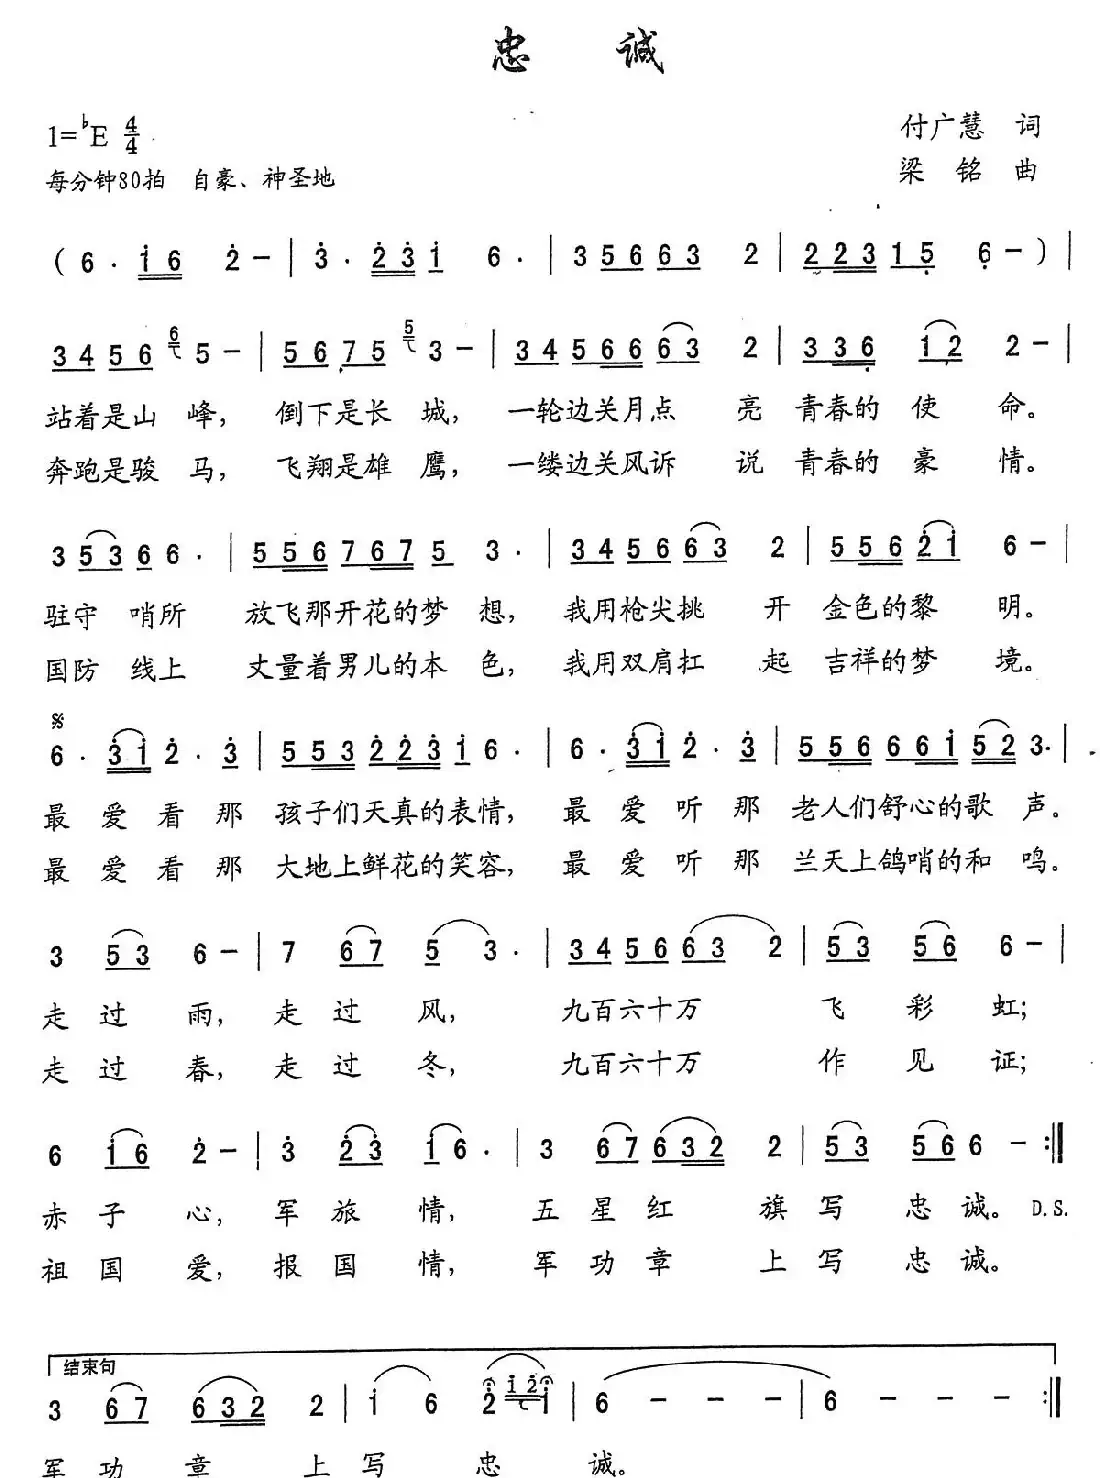 忠 诚
1=♭E 4/4
付广慧 词
每分钟80拍 自豪、神圣地
梁 铭 曲
( 6 · i 6 2 - | 3 · 2 3 i 6 · | 3 5 6 6 3 2 | 2 2 3 1 5 6 - ) |
3 4 5 6 6 5 - | 5 6 7 5 5 3 - | 3 4 5 6 6 6 3 2 | 3 3 6 1 2 2 - |
站着是山 峰， 倒下是长 城， 一轮边关月点 亮 青春的 使 命。
奔跑是骏 马， 飞翔是雄 鹰， 一缕边关风诉 说 青春的 豪 情。
3 5 3 6 6 · | 5 5 6 7 6 7 5 3 · | 3 4 5 6 6 3 2 | 5 5 6 2 i 6 - |
驻守 哨所 放飞那开花的梦 想， 我用枪尖挑 开 金色的黎 明。
国防 线上 丈量着男儿的本 色， 我用双肩扛 起 吉祥的梦 境。
𝄋
6 · 3 i 2 · 3 | 5 5 3 2 2 3 i 6 · | 6 · 3 i 2 · 3 | 5 5 6 6 6 i 5 2 3 · |
最 爱 看 那 孩子们天真的表情， 最 爱 听 那 老人们舒心的歌 声。
最 爱 看 那 大地上鲜花的笑容， 最 爱 听 那 兰天上鸽哨的和 鸣。
3 5 3 6 - | 7 6 7 5 3 · | 3 4 5 6 6 3 2 | 5 3 5 6 6 - |
走 过 雨， 走 过 风， 九百六十万 飞 彩 虹；
走 过 春， 走 过 冬， 九百六十万 作 见 证；
6 i 6 2 - | 3 2 3 i 6 · | 3 6 7 6 3 2 2 | 5 3 5 6 6 - :‖
赤 子 心， 军 旅 情， 五 星 红 旗 写 忠 诚。 D.S.
祖 国 爱， 报 国 情， 军 功 章 上 写 忠 诚。
结束句
3 6 7 6 3 2 2 | i 6 2 i 2 i | 6 - - - | 6 - - - :‖
军 功 章 上 写 忠 诚。